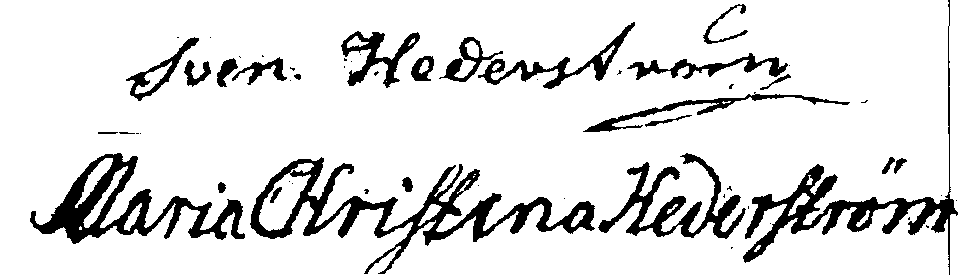 Sven Hederström
Maria Christina Hederström